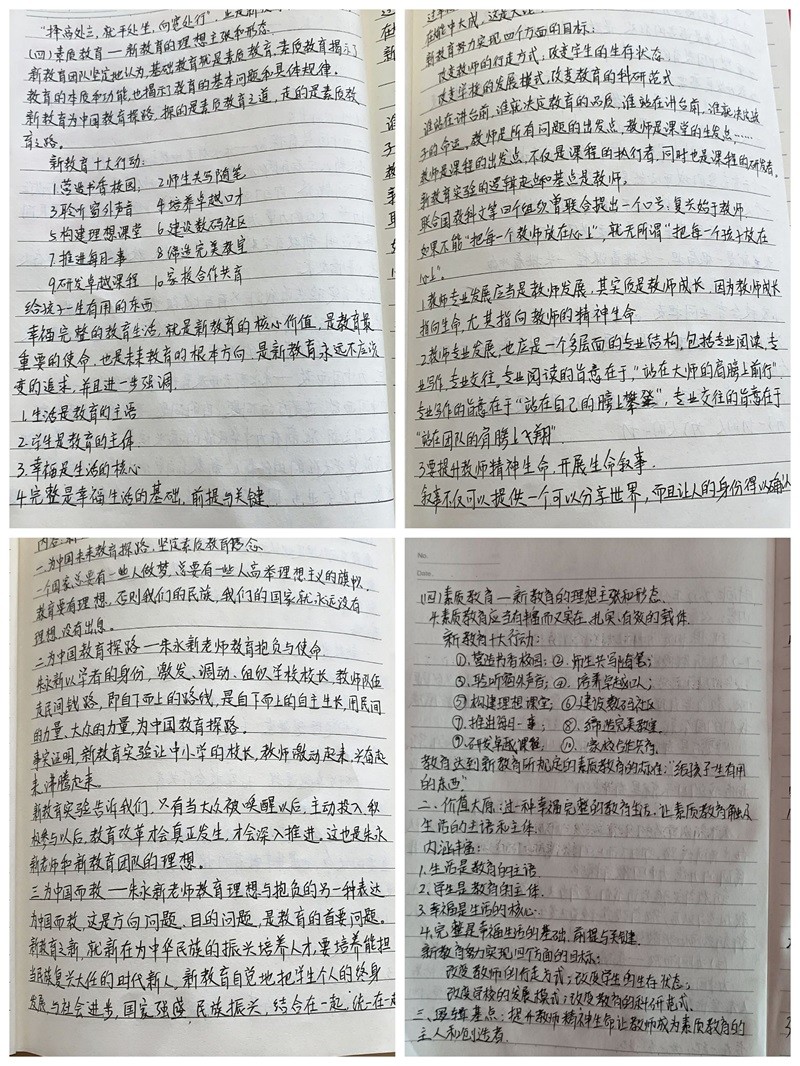 “择高处立, 就平处坐, 向宽处行”,
(四)素质教育—新教育的理想主张和形态.
新教育团队坚定地认为, 基础教育就是素质教育, 素质教育揭示了
教育的本质和功能, 也揭示了教育的基本问题和具体规律.
新教育为中国教育探路, 探的是素质教育之道, 走的是素质教
育之路.
新教育十大行动:
1.营造书香校园, 2师生共写随笔
3聆听窗外声音 4培养卓越口才
5构建理想课堂 6建设数码社区
7推进每月一事 8缔造完美教室
9研发卓越课程 10家校合作共育
给孩子一生有用的东西
幸福完整的教育生活, 就是新教育的核心价值, 是教育最
重要的使命, 也是未来教育的根本方向, 是新教育永远不应该
变的追求, 并且进一步强调.
1.生活是教育的主语
2.学生是教育的主体.
3.幸福是生活的核心
4.完整是幸福生活的基础, 前提与关键
新教育努力实现四个方面的目标:
改变教师的行走方式; 改变学生的生存状态
改变学校的发展模式, 改变教育的科研范式
谁站在讲台前, 谁就决定教育的品质, 谁站在讲台前, 谁就决定孩
子的命运, 教师是所有问题的出发点, 教师是课堂的出发点, ……
教师是课程的出发点, 不仅是课程的执行者, 同时也是课程的研发者.
新教育实验的逻辑起点和基点是教师.
联合国教科文等四个组织曾联合提出一个口号: 复兴始于教师.
如果不能“把每一个教师放在心上”, 就无所谓“把每一个孩子放在
心上”.
1.教师专业发展应当是教师发展, 其实质是教师成长, 因为教师成长
指向生命, 尤其指向教师的精神生命.
2.教师专业发展, 也应是一个多层面的专业结构, 包括专业阅读、专
业写作、专业交往. 专业阅读的旨意在于, “站在大师的肩膀上前行”
专业写作的旨意在于“站在自己的膀上攀登”, 专业交往的旨意在于
“站在团队的肩膀上飞翔”.
3要提升教师精神生命, 开展生命叙事.
叙事不仅可以提供一个可以分享世界, 而且让人的身份得以确认
一.为中国未来教育探路, 坚定素质教育信念
一个国家, 总要有一些人做梦, 总要有一些人高举理想主义的旗帜,
教育要有理想, 否则我们的民族, 我们的国家就永远没有
理想, 没有出息.
二为中国教育探路—朱永新老师教育抱负与使命.
朱永新以学者的身份, 激发、调动、组织学校校长, 教师队伍
走民间线路, 即自下而上的路线, 是自下而上的自主生长, 用民间
的力量, 大众的力量, 为中国教育探路.
事实证明, 新教育实验让中小学的校长, 教师激动起来, 兴奋起
来, 沸腾起来.
新教育实验告诉我们, 只有当大众被唤醒以后, 主动投入, 积
极参与以后, 教育改革才会真正发生, 才会深入推进. 这也是朱永
新老师和新教育团队的理想.
三为中国而教—朱永新老师教育理想与抱负的另一种表达
为中国而教, 这是方向问题、目的问题, 是教育的首要问题.
新教育之新, 就新在为中华民族的振兴培养人才, 要培养能担
当民族复兴大任的时代新人, 新教育自觉地把学生个人的终身
发展与社会进步, 国家强盛, 民族振兴, 结合在一起, 统一在一起
No.
Date.
(四)素质教育—新教育的理想主张和形态.
4.素质教育应当有丰富而又实在, 扎实、有效的载体.
新教育十大行动:
①.营造书香校园; ②.师生共写随笔;
③.聆听窗外声音; ④.培养卓越口才;
⑤构建理想课堂; ⑥建设数码社区
⑦推进每月一事; ⑧.缔造完美教室.
⑨.研发卓越课程. ⑩.家校合作共育.
教育达到新教育所规定的素质教育的存在: “给孩子一生有用
的东西”
二、价值大厦: 过一种幸福完整的教育生活, 让素质教育触及
生活的主语和主体.
内涵丰富:
1.生活是教育的主语.
2.学生是教育的主体.
3.幸福是生活的核心.
4.完整是幸福生活的基础、前提与关键.
新教育努力实现四个方面的目标:
改变教师的行走方式; 改变学生的生存状态;
改变学校的发展模式; 改变教育的科研范式.
三、逻辑基点: 提升教师精神生命, 让教师成为素质教育的
主人和创造者.